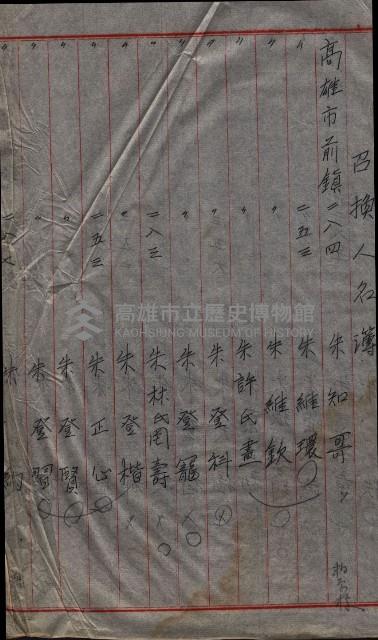 召換人名簿
高雄市前鎮 二八四 朱知哥
〃 二五三 朱維環
〃 〃 朱維欽
〃 〃 朱許氏畫
〃 〃 朱登科
〃 〃 朱登寵
〃 二八三 朱林氏罔壽
〃 〃 朱登楷
〃 二五三 朱正心
〃 〃 朱登賢
〃 〃 朱登
〃 二八 朱
高雄市立歷史博物館
KAOHSIUNG MUSEUM OF HISTORY